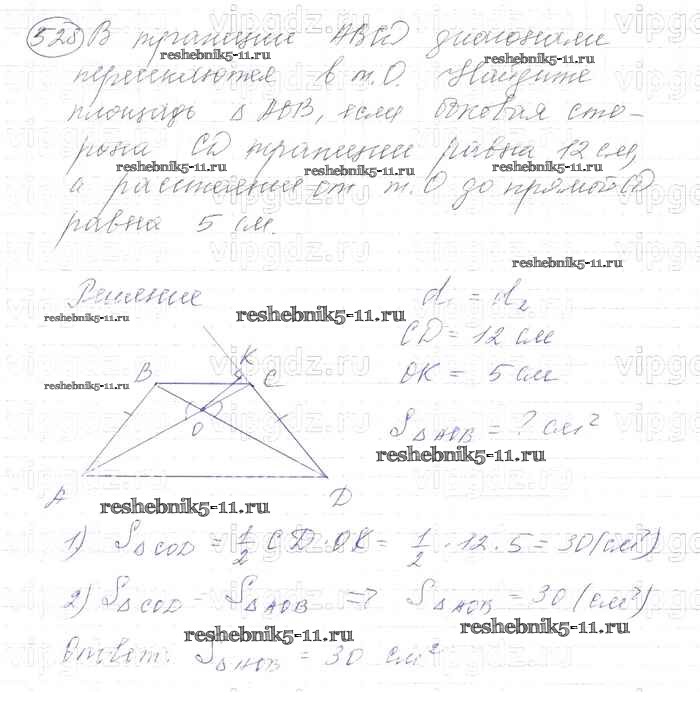 528 В трапеции ABCD диагонали
пересекаются в т. О. Найдите
площадь Δ AOB, если боковая сто-
рона CD трапеции равна 12 см,
а расстояние от т. О до прямой CD
равна 5 см.
reshebnik5-11.ru
Решение
d₁ = d₂
CD = 12 см
OK = 5 см
S Δ AOB = ? см²
K
B
C
O
A
D
1) S Δ COD = 1/2 CD · OK = 1/2 · 12 · 5 = 30 (см²)
2) S Δ COD = S Δ AOB => S Δ AOB = 30 (см²)
Ответ: S Δ AOB = 30 см²
reshebnik5-11.ru
vipgdz.ru